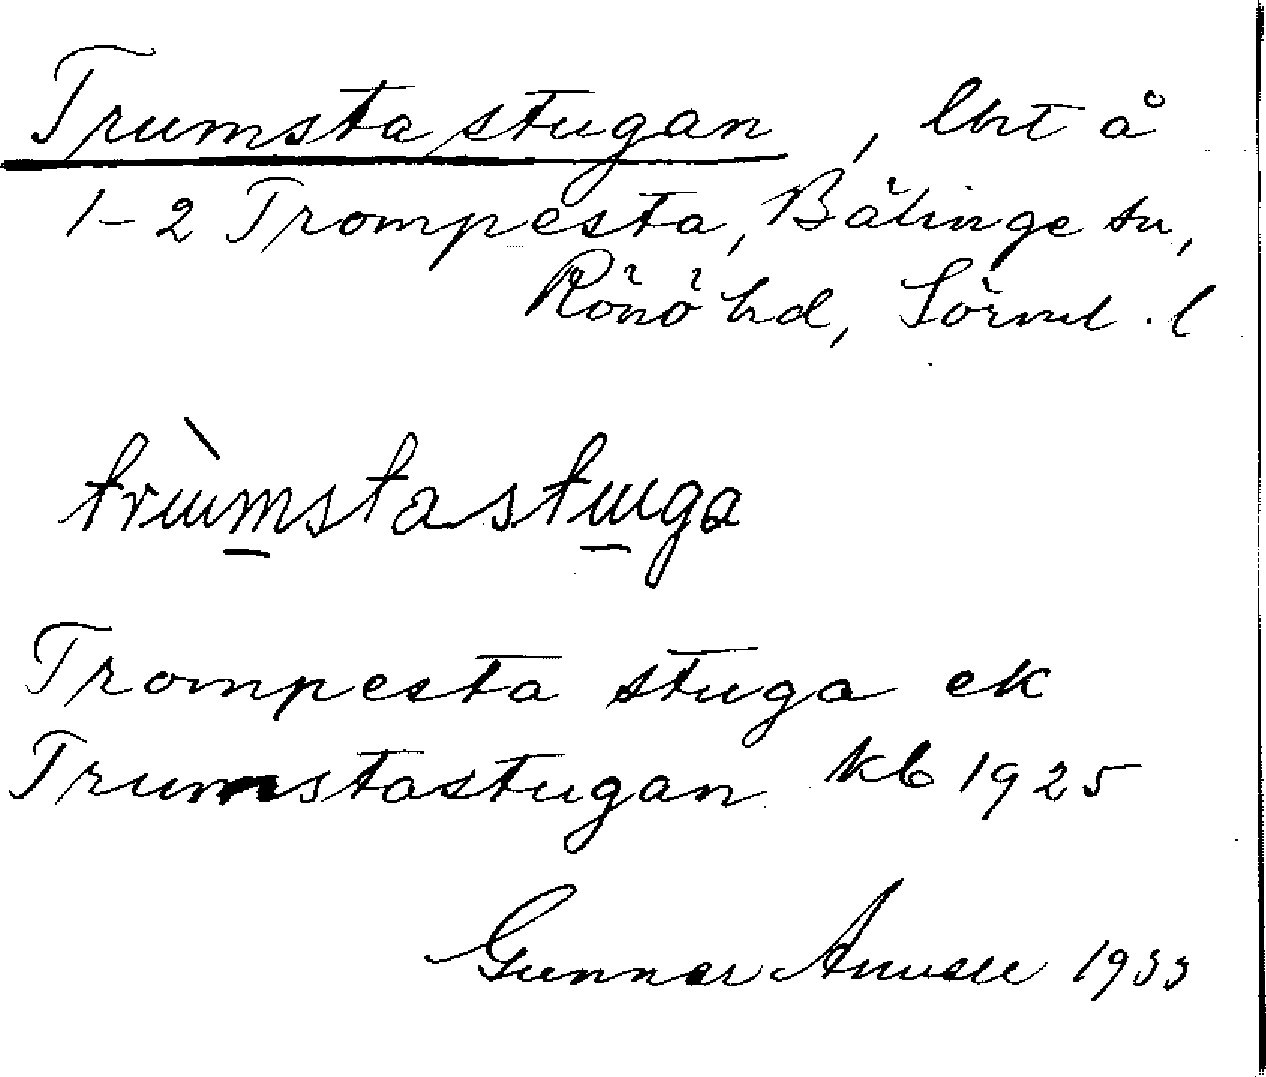 Trumstastugan, lht å
1-2 Trompesta, Bälinge sn,
Rönö hd, Sörml. l
trumstastuga
Trompesta stuga ek
Trumstastugan kb 1925
Gunnar 1933